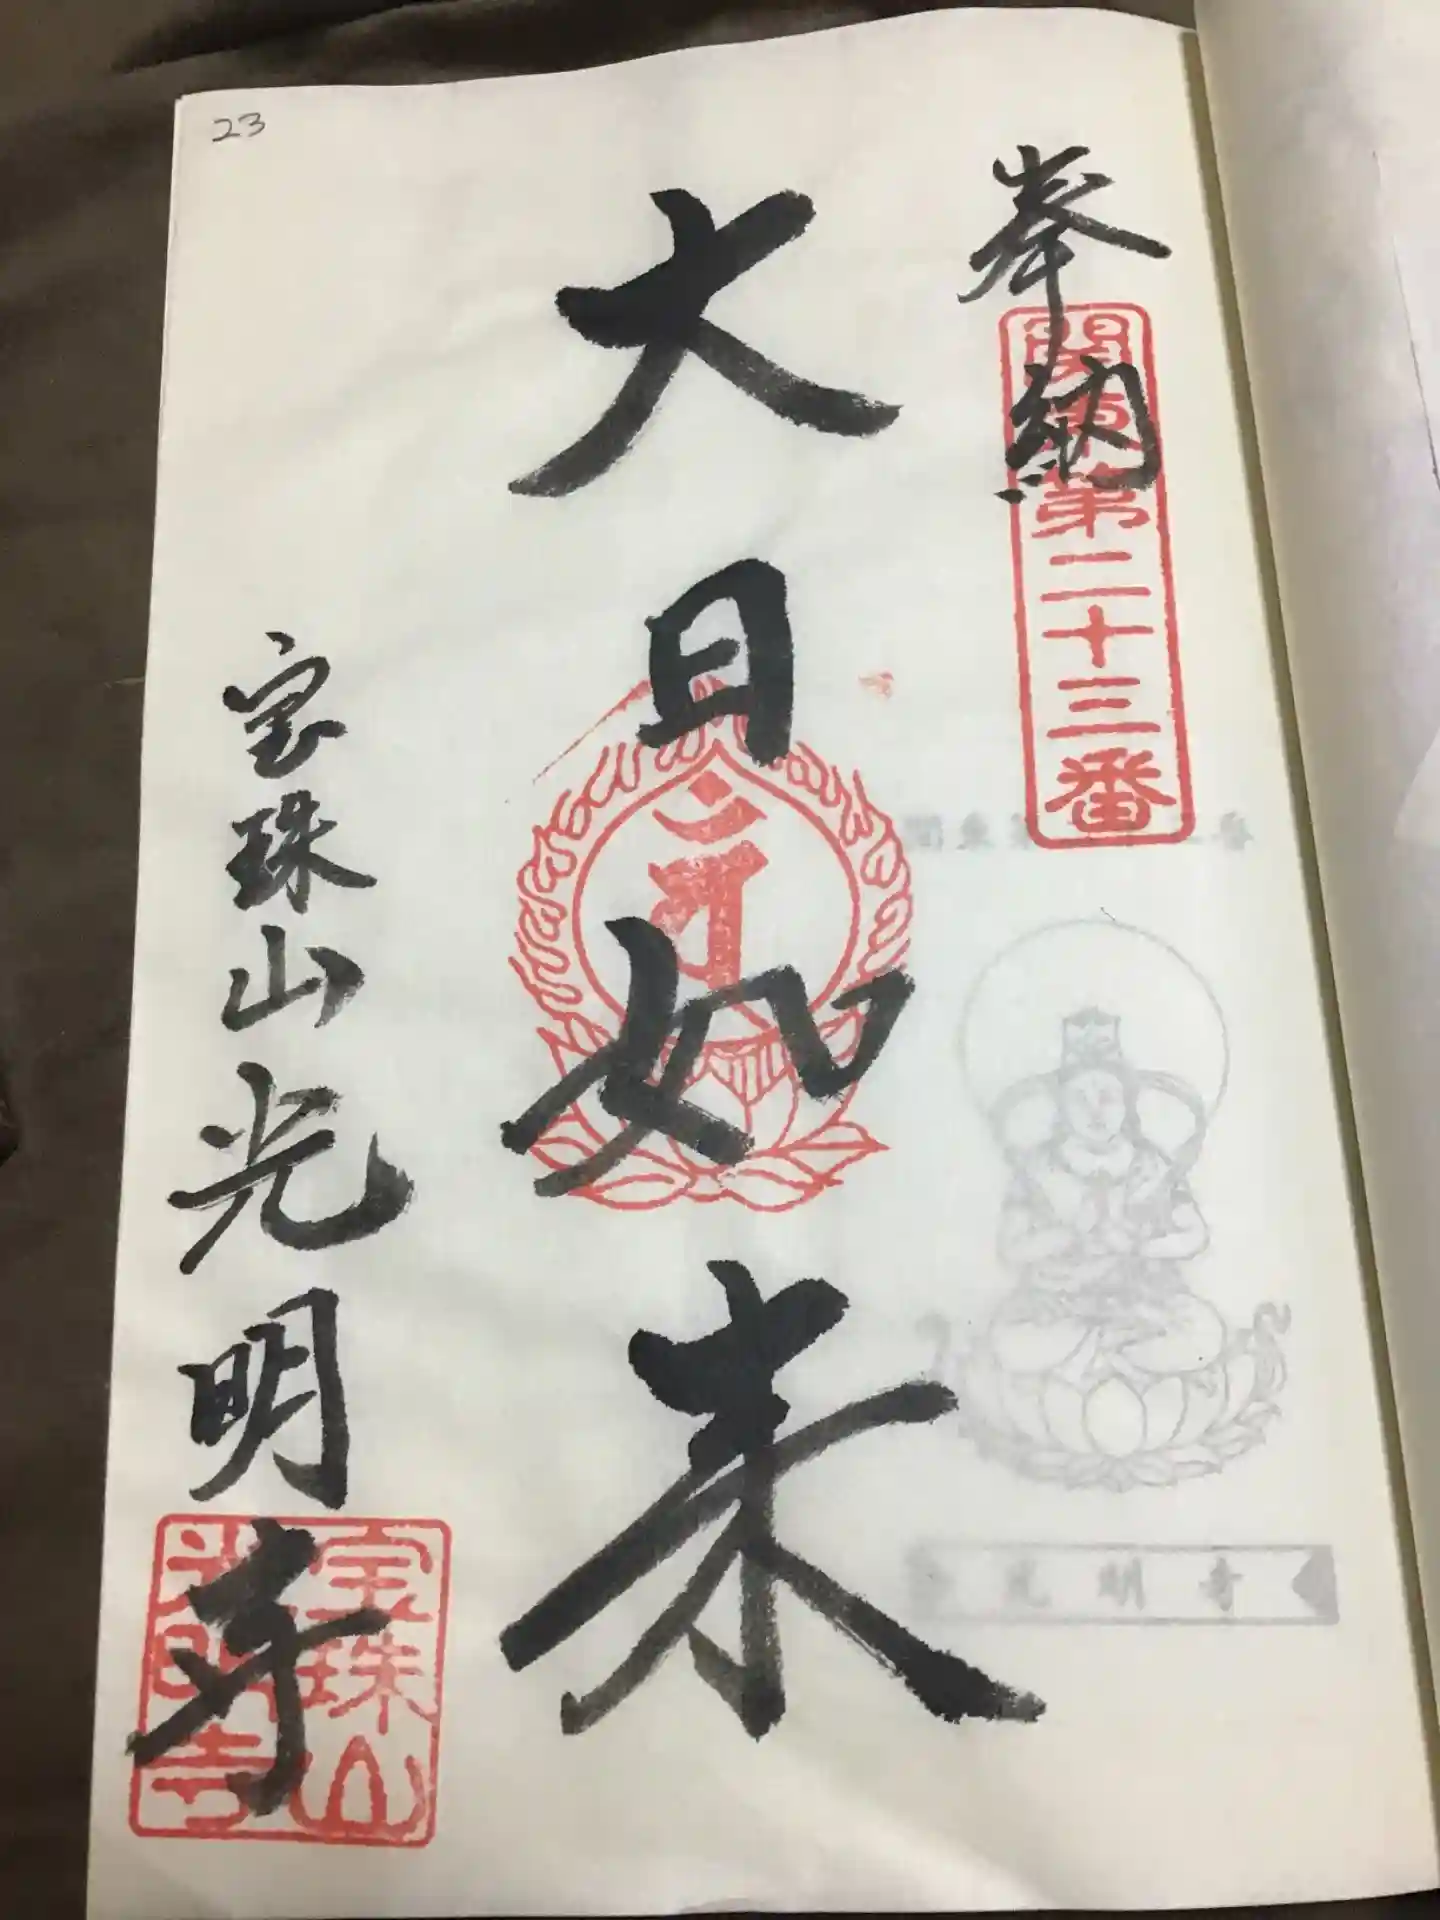 23
奉納
関東第二十三番
大日如来
宝珠山光明寺
宝珠山
光明寺
光明寺